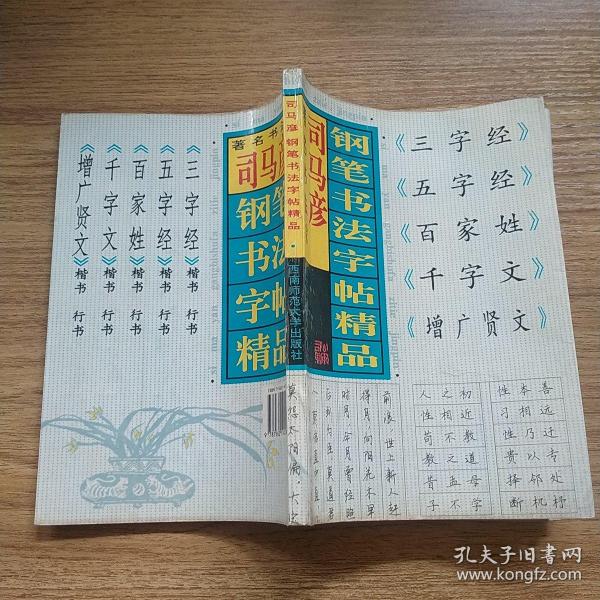 《三字经》
《五字经》
《百家姓》
《千字文》
《增广贤文》
司马彦
钢笔书法字帖精品
si ma yan gangbishufa zitie jingpin
人之初
性相近
苟不教
教之道
昔孟母
子不学
性本善
习相远
性乃迁
贵以专
择邻处
断机杼
司马彦 钢笔书法字帖精品
西南师范大学出版社
著名书
司马
钢笔
书法
字帖
精品
《三字经》楷书 行书
《五字经》楷书 行书
《百家姓》楷书 行书
《千字文》楷书 行书
《增广贤文》楷书 行书
孔夫子旧书网
www.kongfz.com